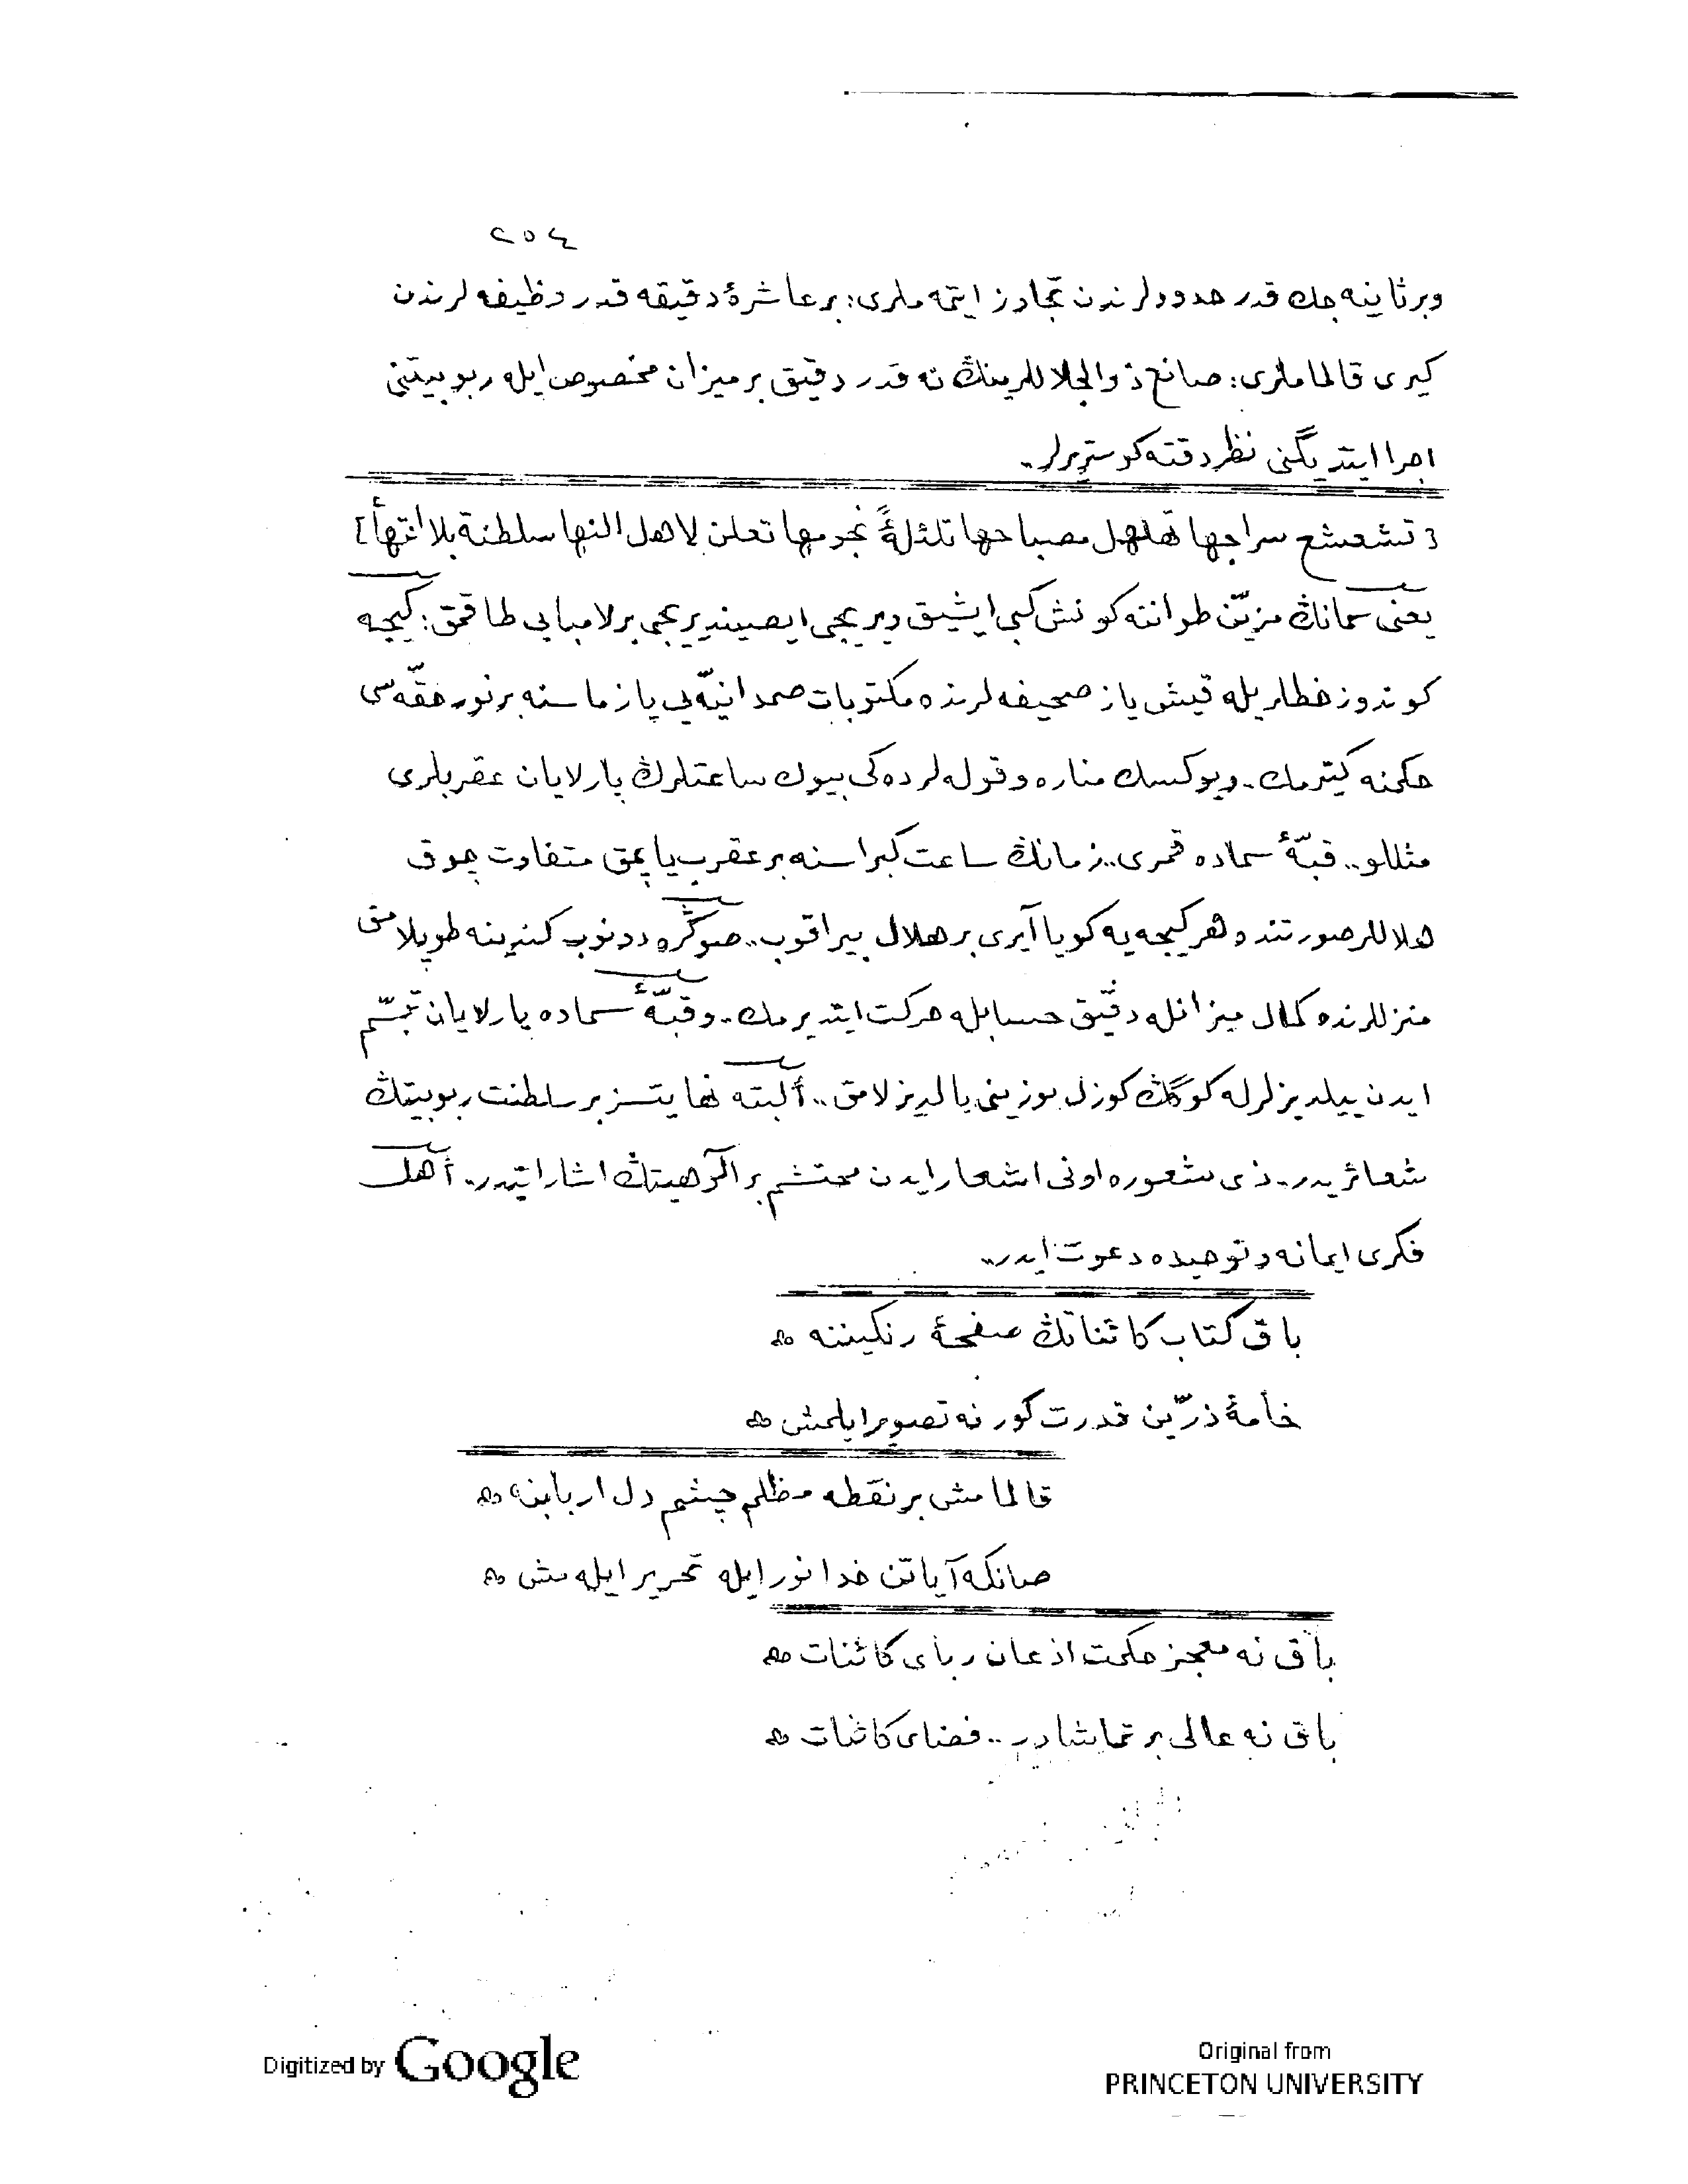 ٢٥٤
وبرثانيه جك قدر حدودلرندن تجاوز ايتمه ملرى؛ بر عاشرۀ دقيقه قدر وظيفه لرندن
كيرى قالماملرى؛ صانع ذوالجلاللرينڭ نه قدر دقيق بر ميزان مخصوص ايله ربوبيتنى
اجرا ايتديگنى نظر دقته كوستريرلر..
[تشعشع سراجها تهلهل مصباحها تلئلؤ نجومها تعلن لاهل النها سلطنة بلا انتهأ]
يعنى سمانڭ مزيّن طواننه كونش كبى ايشيق ويريجى ايصينديريجى بر لامبايى طاقمق؛ كيجه
كوندوز خطلريله قيش ياز صحيفه لرنده مكتوبات صمدانيّه يى يازماسنه بر نور حقّه سى
حكمنه كتيرمك.. ويوكسك مناره وقوله لرده كى بيوك ساعتلرڭ پارلايان عقربلرى
مثللو.. قبّۀ سماده قمرى.. زمانڭ ساعت كبراسنه بر عقرب ياپمق متفاوت چوق
هلاللر صورتنده هر كيجه يه كويا آيرى بر هلال بيراقوب.. صوڭره دونوب كندينه طوپلامق
منزللرنده كمال ميزانله دقيق حسابله حركت ايتديرمك.. وقبّۀ سماده پارلايان تبسّم
ايدن ييلديزلرله كوگڭ كوزل يوزينى يالديزلامق.. ألبته نهايتسز بر سلطنت ربوبيتڭ
شعائريدر.. ذى شعوره اونى اشعار ايدن محتشم بر الوهيتڭ اشاراتيدر.. أهل
فكرى ايمانه و توحيده دعوت ايدر..
باق كتاب كائناتڭ صفحۀ رنكيننه ⁂
خامۀ زرّين قدرت كور نه تصوير ايلمش ⁂
قالمامش بر نقطه مظلم چشم دل اربابنه ⁂
صانكه آياتن خدا نور ايله تحرير ايله مش ⁂
باق نه معجز حكمت اذعان رباى كائنات ⁂
باق نه عالى بر تماشادر.. فضاى كائنات ⁂
Digitized by Google
Original from
PRINCETON UNIVERSITY